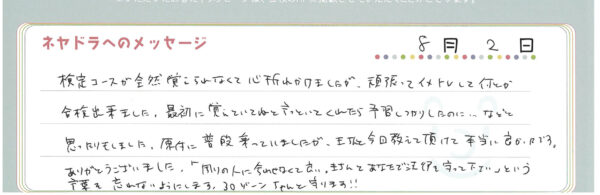 ネヤドラへのメッセージ
8月 2日
検定コースが全然覚えられなくて心折れかけましたが、頑張ってイメトレして何とか
合格出来ました。最初に覚えていてねと言っといてくれたら予習しっかりしたのに…などと
思ったりもしました。原付に普段乗っていましたが、まなと今日教えて頂けて本当に良かったです。
ありがとうございました。「周りの人に合わせなくて良い、まなんであなたで法律を守って下さい」という
言葉を忘れないようにします。30ゾーンちゃんと守ります!!